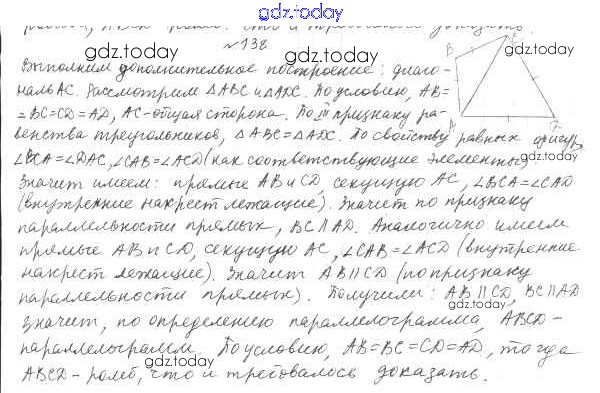 №138
Выполним дополнительное построение: диаго-
наль AC. Рассмотрим △ABC и △ADC. По условию, AB=
=BC=CD=AD, AC-общая сторона. По III признаку ра-
венства треугольников, △ABC=△ADC. По свойству равных фигур,
∠BCA=∠DAC, ∠CAB=∠ACD (как соответствующие элементы).
Значит имеем: прямые AB и CD, секущую AC, ∠BCA=∠CAD
(внутренние накрест лежащие). Значит по признаку
параллельности прямых, BC||AD. Аналогично имеем
прямые AB и CD, секущую AC, ∠CAB=∠ACD (внутренние
накрест лежащие). Значит AB||CD (по признаку
параллельности прямых). Получили: AB||CD, BC||AD
Значит, по определению параллелограмма, ABCD-
параллелограмм. По условию, AB=BC=CD=AD, тогда
ABCD-ромб, что и требовалось доказать.
B
C
A
gdz.today
gdz.today
gdz.today
gdz.today
gdz.today
gdz.today
gdz.today
gdz.today
gdz.today
gdz.today